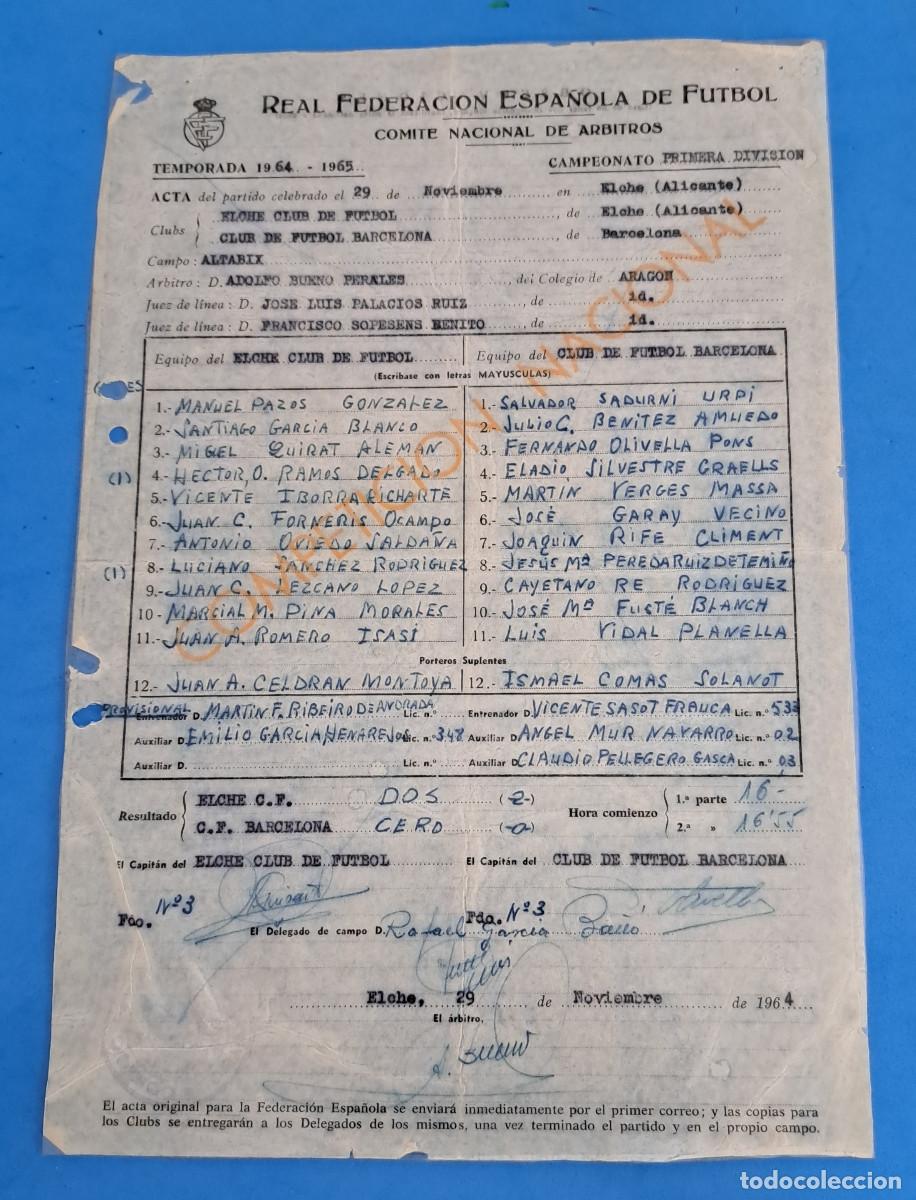 REAL FEDERACION ESPAÑOLA DE FUTBOL
COMITE NACIONAL DE ARBITROS
TEMPORADA 1964 - 1965 CAMPEONATO PRIMERA DIVISION
ACTA del partido celebrado el 29 de Noviembre en Elche (Alicante)
Clubs ELCHE CLUB DE FUTBOL, de Elche (Alicante)
CLUB DE FUTBOL BARCELONA, de Barcelona
Campo: ALTABIX
Arbitro: D. ADOLFO BUENO PERALES del Colegio de ARAGON
Juez de línea: D. JOSE LUIS PALACIOS RUIZ, de id.
Juez de línea: D. FRANCISCO SOPESENS BENITO, de id.
COMPETICION NACIONAL
Equipo del ELCHE CLUB DE FUTBOL Equipo del CLUB DE FUTBOL BARCELONA
(Escríbase con letras MAYUSCULAS)
1.- MANUEL PAZOS GONZALEZ 1.- SALVADOR SADURNI URPI
2.- SANTIAGO GARCIA BLANCO 2.- JULIO C. BENITEZ AMUEDO
3.- MIGEL QUIRAT ALEMAN 3.- FERNANDO OLIVELLA PONS
(1) 4.- HECTOR, O. RAMOS DELGADO 4.- ELADIO SILVESTRE GRAELLS
5.- VICENTE IBORRA RICHARTE 5.- MARTIN VERGES MASSA
6.- JUAN C. FORNERIS OCAMPO 6.- JOSÉ GARAY VECINO
7.- ANTONIO OVIEDO SALDAÑA 7.- JOAQUIN RIFE CLIMENT
(1) 8.- LUCIANO SANCHEZ RODRIGUEZ 8.- JESÚS Mª PEREDA RUIZ DE TEMIÑO
9.- JUAN C. LEZCANO LOPEZ 9.- CAYETANO RE RODRIGUEZ
10.- MARCIAL M. PINA MORALES 10.- JOSÉ Mª FUSTÉ BLANCH
11.- JUAN A. ROMERO ISASI 11.- LUIS VIDAL PLANELLA
Porteros Suplentes
12.- JUAN A. CELDRAN MONTOYA 12.- ISMAEL COMAS SOLANOT
PROVISIONAL
Entrenador D. MARTIN F. RIBEIRO DE ANDRADA Lic. n.º Entrenador D. VICENTE SASOT FRAUCA Lic. n.º 533
Auxiliar D. EMILIO GARCIA HENAREJOS Lic. n.º 348 Auxiliar D. ANGEL MUR NAVARRO Lic. n.º 02
Auxiliar D. Lic. n.º Auxiliar D. CLAUDIO PELLEGERO GASCA Lic. n.º 03
Resultado ELCHE C.F. DOS (-2-) Hora comienzo 1.ª parte 16-
C.F. BARCELONA CERO (-0-) 2.ª » 16'55
El Capitán del ELCHE CLUB DE FUTBOL El Capitán del CLUB DE FUTBOL BARCELONA
Fdo. Nº 3 Fdo. Nº 3
El Delegado de campo D. Rafael García
Elche, 29 de Noviembre de 1964
El árbitro,
A. Bueno
El acta original para la Federación Española se enviará inmediatamente por el primer correo; y las copias para
los Clubs se entregarán a los Delegados de los mismos, una vez terminado el partido y en el propio campo.
todocoleccion